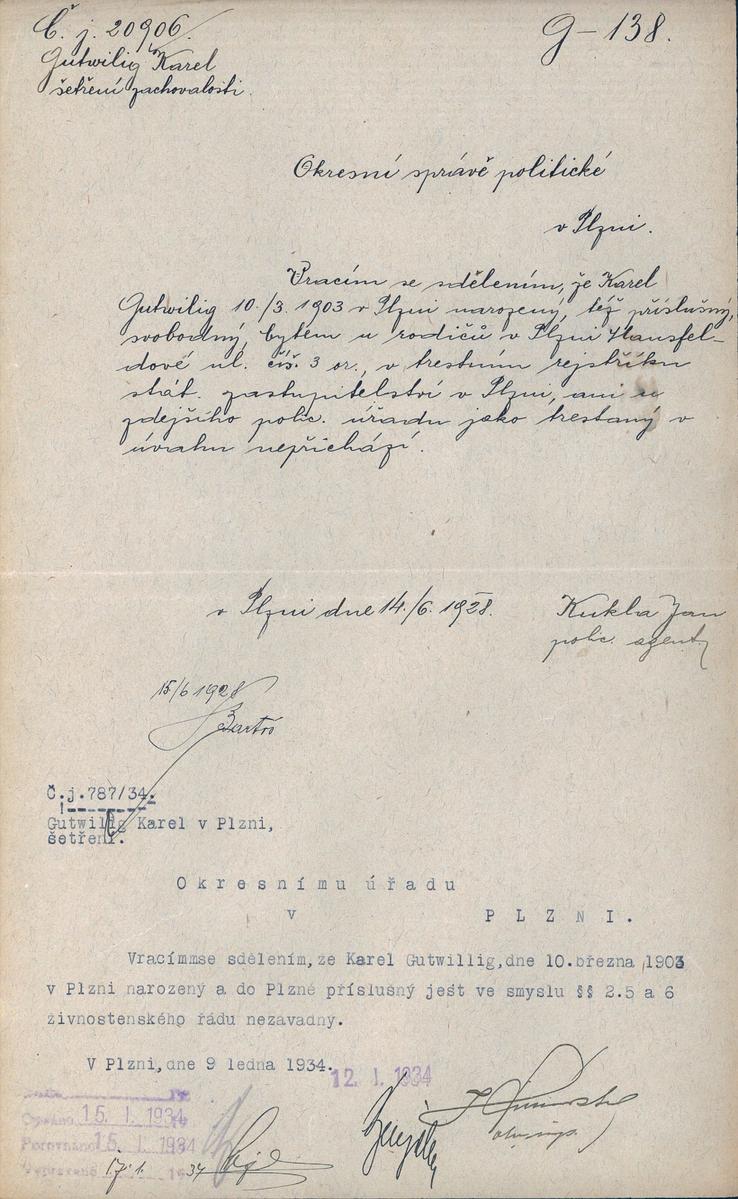 Č. j. 20906.
G-138.
Gutwilig Karel
šetření zachovalosti.
Okresní správě politické
v Plzni.
Vracím se sdělením, že Karel
Gutwilig 10./3. 1903 v Plzni narozený, též příslušný,
svobodný, bytem u rodičů v Plzni Hansfel-
dové ul. čís. 3 or., v trestním rejstříku
stát. zastupitelství v Plzni, ani u
zdejšího polic. úřadu jako trestaný v
úvahu nepřichází.
v Plzni dne 14./6. 1928.
Kukla Jan
polic. agent
15/6 1928
Bartoš
Č.j.787/34.
Gutwilig Karel v Plzni,
šetření.
Okresnímu úřadu
v PLZNI.
Vracímmse sdělením,ze Karel Gutwillig,dne 10.března 1903
v Plzni narozený a do Plzně příslušný ješt ve smyslu §§ 2.5 a 6
živnostenského řádu nezavadny.
V Plzni,dne 9 ledna 1934.
12. I. 1934
Opsáno 15. I. 1934
Porovnáno 15. I. 1934
Vypraveno 19
17/1. 34